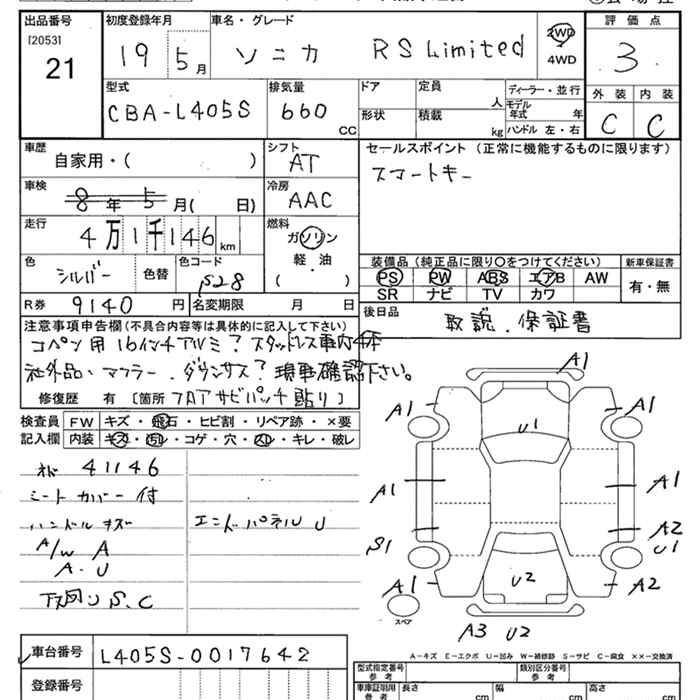 出品番号 初度登録年月 車名・グレード 評価点
[2053]
21 19 5月 ソニカ RS Limited 2WD 4WD 3
型式 排気量 ドア 定員 人 ディーラー・並行 外装 内装
CBA-L405S 660 CC 形状 積載 kg モデル年式 年 ハンドル 左・右 C C
車歴 自家用・( ) シフト AT セールスポイント (正常に機能するものに限ります)
スマートキー
車検 8年5月( 日) 冷房 AAC
走行 4万1千146km 燃料 ガソリン・軽油・( )
色 シルバー 色替 色コード S28
装備品 (純正品に限り○をつけてください) 新車保証書
PS PW ABS エアB AW 有・無
SR ナビ TV カワ
R券 9140円 名変期限 月 日 後日品 取説、保証書
注意事項申告欄(不具合内容等は具体的に記入して下さい)
コペン用16インチアルミ? スタッドレス車内4本
社外品、マフラー、ダウンサス? 現車確認下さい。
修復歴 有 [箇所 フロアサビパッチ貼り]
検査員 FW キズ・飛石・ヒビ割・リペア跡・×要
記入欄 内装 キズ・汚れ・コゲ・穴・スレ・キレ・破レ
41146
シートカバー付
ハンドルキズ エンドパネル U
A/W A
A・U
下回り S、C
A1
A1 A1
U1
A1 A1
A2
S1 U1
A1 U2 A2
スペア
A3 U2
A-キズ E-エクボ U-凹み W-補修跡 S-サビ C-腐食 ××-交換済
車台番号 L405S-0017642
登録番号
型式指定番号 参考 類別区分番号 参考
車庫証明用 参考 長さ cm 幅 cm 高さ cm